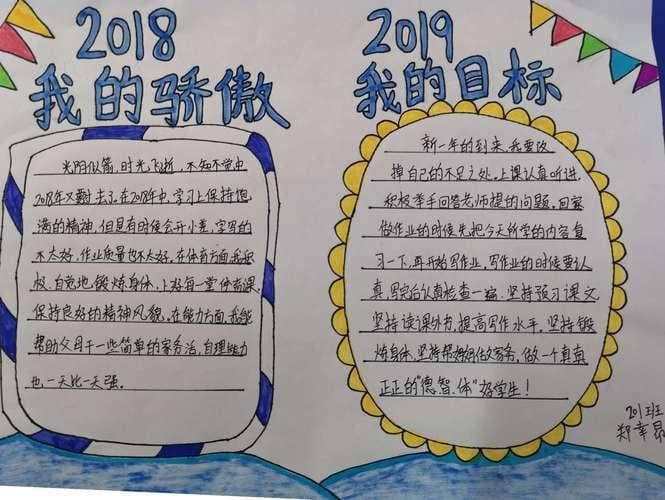 2018
我的骄傲
光阴似箭，时光飞逝，不知不觉中
2018年又要过去了。在2018年中，学习上保持饱
满的精神，但是有时候会开小差，字写的
不太好，作业质量也不太好，在体育方面我积
极、自觉地锻炼身体，上好每一堂体育课，
保持良好的精神风貌，在能力方面，我能
帮助父母干一些简单的家务活，自理能力
也一天比一天强。
2019
我的目标
新一年的到来，我要改
掉自己的不足之处，上课认真听讲，
积极举手回答老师提的问题，回家
做作业的时候先把今天所学的内容复
习一下，再开始写作业，写作业的时候要认
真，写完后认真检查一遍，坚持预习课文
坚持读课外书，提高写作水平，坚持锻
炼身体，坚持帮妈妈做家务，做一个真真
正正的“德、智、体”好学生！
201班
郑幸